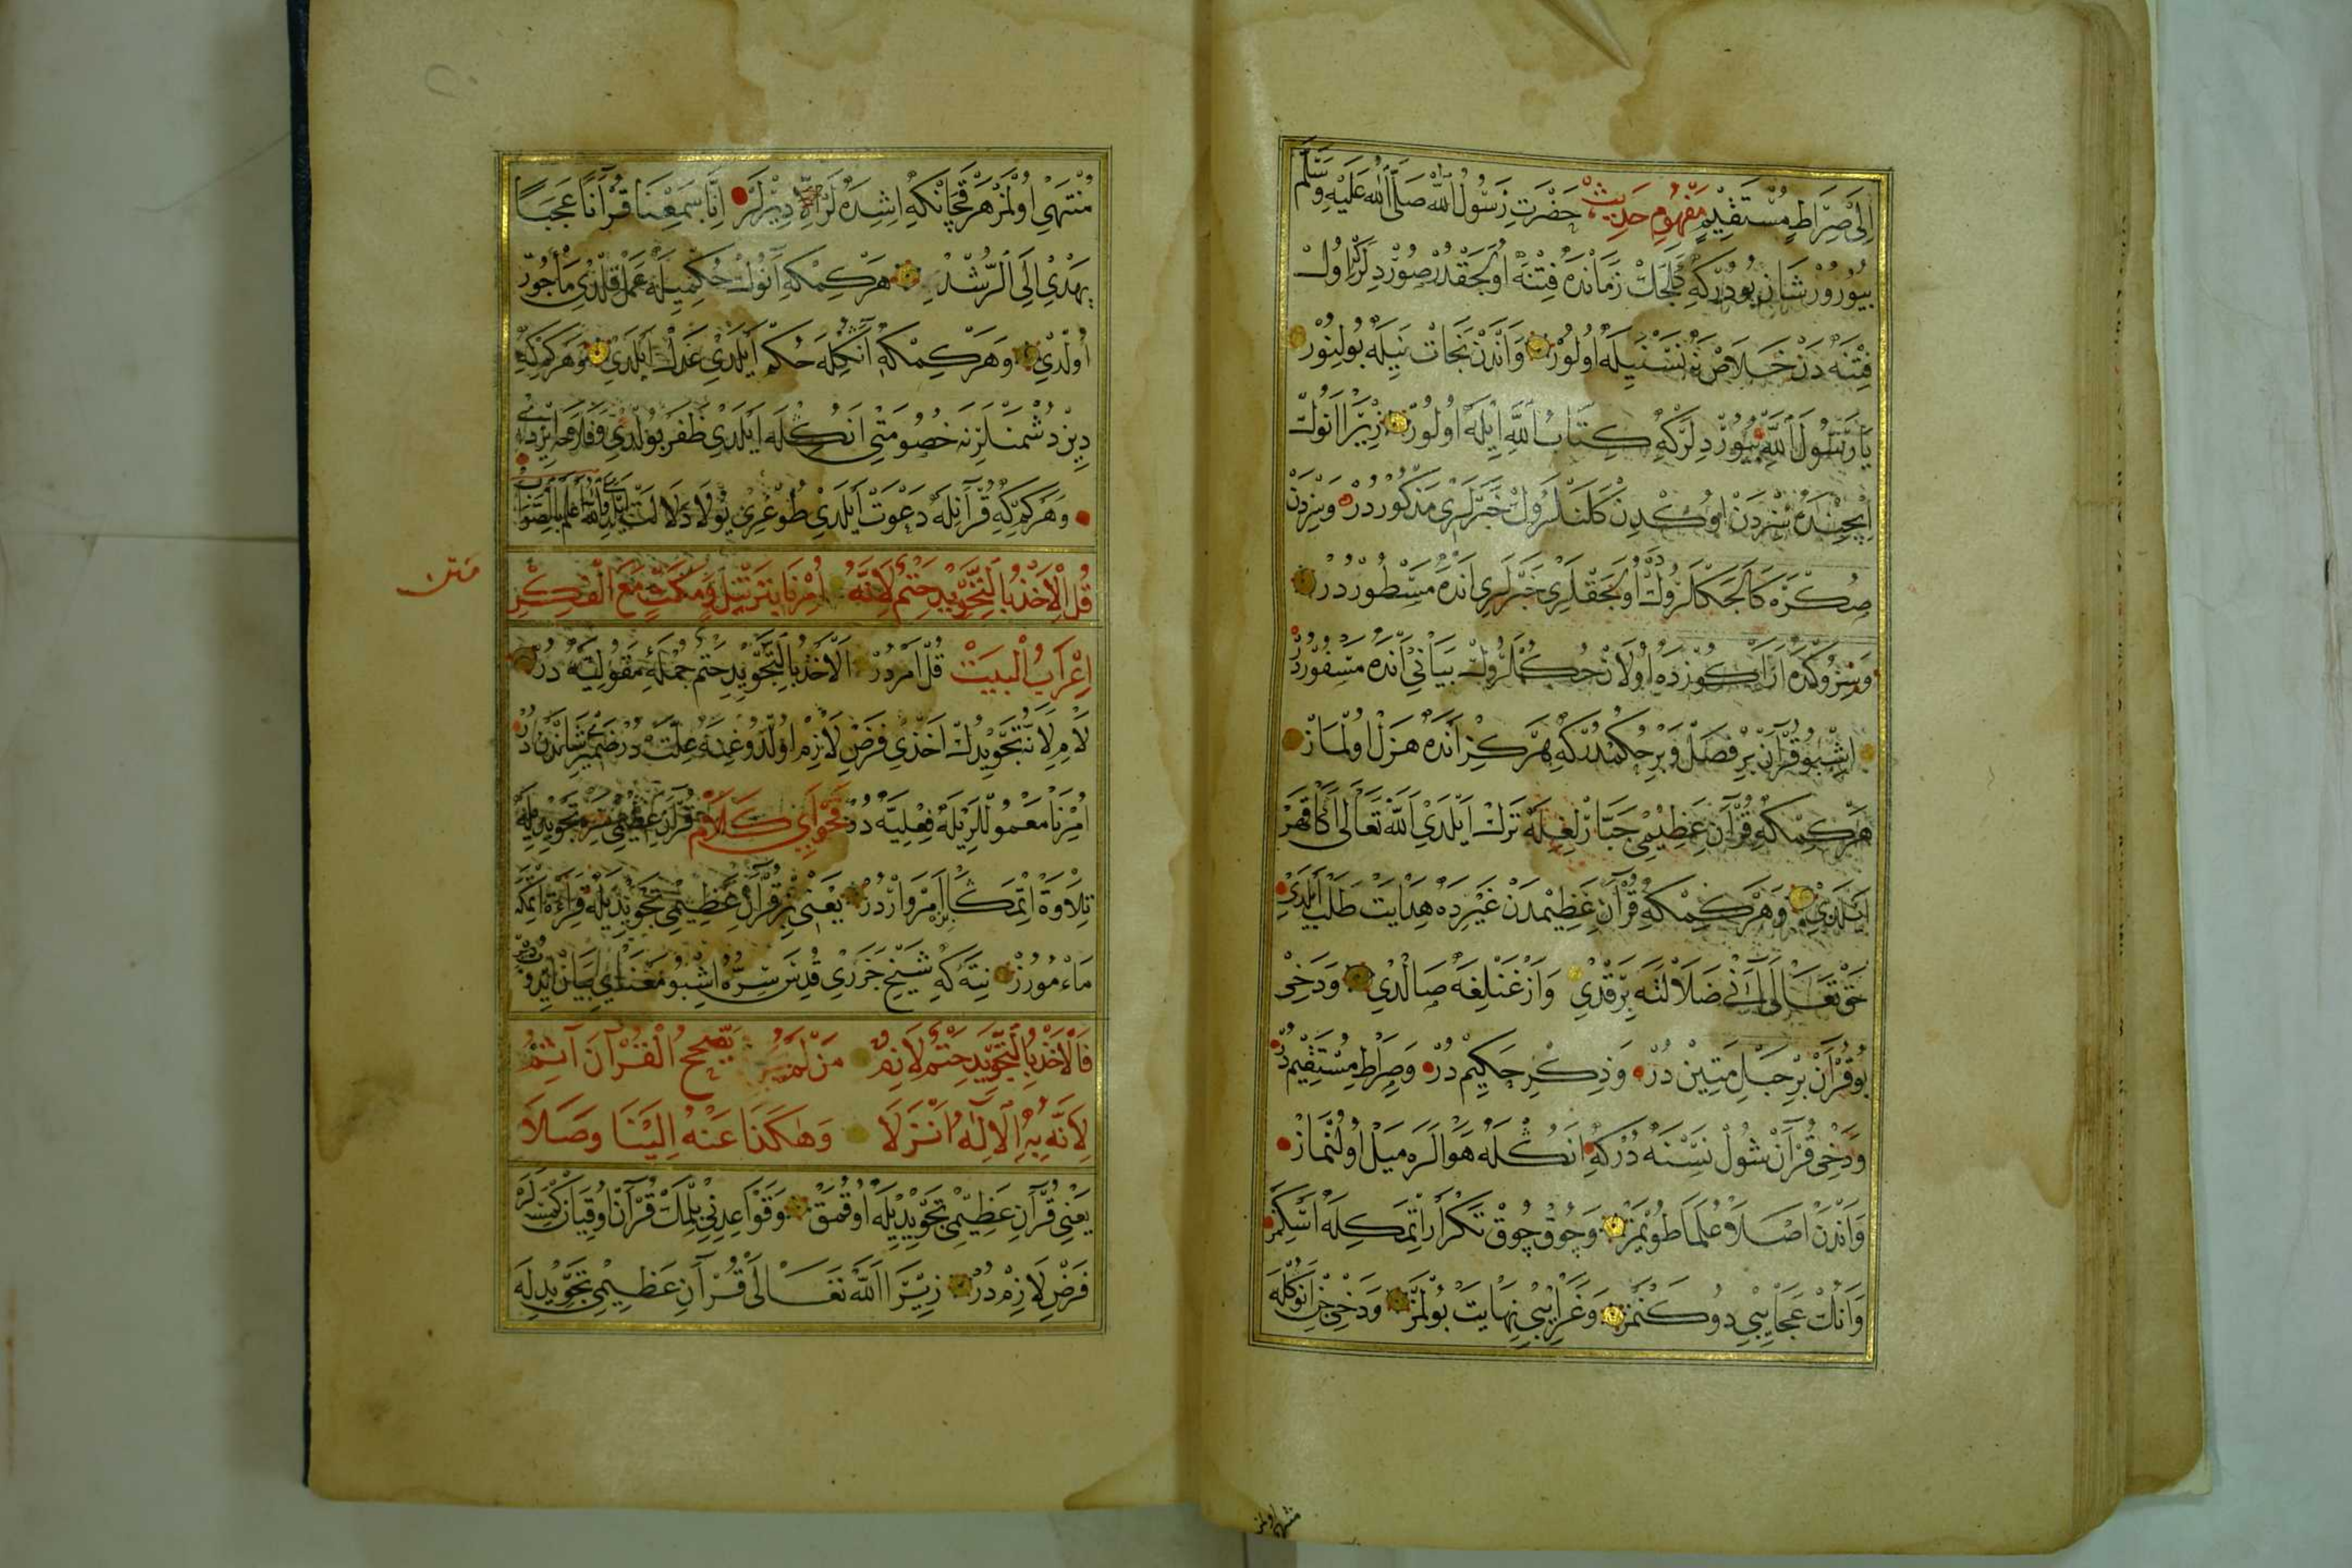 اِلٰى صِرَاطٍ مُسْتَقِيمٍ مَفْهُومِ حَدِيث حَضْرَتِ رَسُولُ اللّٰه صَلَّى اللّٰه عَلَيْهِ وَسَلَّمَ
بُيُورُورْ شَانِ بُودُرْكِه كَلَجَكْ زَمَانْدَه فِتْنَه اُولَجَقْدُرْ صُورْدِيلَرْ اُولْ
فِتْنَه دَنْ خَلَاصْ نَه نَسْنَيِلَه اُولُورْ وَاَنْدَنْ نَجَاتْ نَيِلَه بُولِنُورْ
يَا رَسُولَ اللّٰه بُيُورْدِيلَرْكِه كِتَابُ اللّٰه اِيلَه اُولُورْ زِيرَا اَنُوكْ
اِيچِنْدَه سِزْدَنْ اُوكْدِنْ كَلَنْلَرُوكْ خَبَرْلَرِى مَذْكُورْدُرْ وَسِزْدَنْ
صِكْرَه كَالَجَكْلَرُوكْ اُولَجَقْلَرِى خَبَرْلَرِى اَنْدَه مَسْطُورْدُرْ
وَسِزُوكْدَه اَرَاكُوزْدَه اُولَانْ حُكْمْلَرُوكْ بَيَانِى اَنْدَه مَسْفُورْدُرْ
اِشْبُو قُرْآنْ بِرْ فَصْلْ وَبِرْ حُكْمْدُرْكِه هَرْكِزْ اَنْدَه هَزْلْ اُولْمَازْ
هَرْ كِمْكِه قُرْآنِ عَظِيمِى جَبَّارْلِغِلَه تَرْكْ اَيْلَدِى اَللّٰه تَعَالٰى اَكَا قَهْرْ
اَيْلَدِى وَهَرْ كِمْكِه قُرْآنِ عَظِيمْدَنْ غَيْرِدَه هِدَايَتْ طَلَبْ اَيْلَدِى
حَقْ تَعَالٰى اَنِى ضَلَالَتَه بِرَقْدِى وَازْغَنْلِغَه صَالْدِى وَدَخِى
بُو قُرْآنْ بِرْ حَبْلِ مَتِينْ دُرْ وَذِكْرِ حَكِيمْ دُرْ وَصِرَاطِ مُسْتَقِيمْ دُرْ
وَدَخِى قُرْآنْ شُولْ نَسْنَه دُرْكِه اَنُكْلَه هَوَالَرَه مَيْلْ اُولُنْمَازْ
وَاَنْدَنْ اَصْلَا عُلَمَا طُويْمَزْ وَچُوقْ چُوقْ تَكْرَارْ اِتْمَكِلَه اَسْكِمَزْ
وَاَنُكْ عَجَايِبِى دُوكَنْمَزْ وَغَرَايِبِى نِهَايَتْ بُولْمَزْ وَدَخِى جِنْ اَنُوكْلَه
منتهى اولمز
مُنْتَهِى اُولْمَزْ هَرْ قَچَانْكِه اِشِدَه لَرْ اِلَّا دِيرْلَرْ اِنَّا سَمِعْنَا قُرْآنًا عَجَبًا
يَهْدِى اِلَى الرُّشْدِ هَرْ كِمْكِه اَنُوكْ حُكْمِيلَه عَمَلْ قِلْدِى مَأْجُورْ
اُولْدِى وَهَرْ كِمْكِه اَنُكْلَه حُكْمْ اَيْلَدِى عَدْلْ اَيْلَدِى وَهَرْ كِمْكِه
دِيْنْ دُشْمَنْلَرِنَه خُصُومَتِى اَنُكْلَه اَيْلَدِى ظَفَرْ بُولْدِى
وَهَرْ كِمْكِه قُرْآنِلَه دَعْوَتْ اَيْلَدِى طُوغْرِى يُولَا دَلَالَتْ اَيْلَدِى وَاللّٰه اَعْلَمُ بِالصَّوَابْ
مَتْن
قُلِ الْاَخْذُ بِالتَّجْوِيدِ حَتْمٌ لِاَنَّهُ اُمِرْنَا بِتَرْتِيلٍ وَمَكْثٍ مَعَ الْفِكْرِ
اِعْرَابُ الْبَيَتْ قُلْ اَمْرْ دُرْ اَلْاَخْذُ بِالتَّجْوِيدِ حَتْمٌ جُمْلَه مَقُولِيَّه دُرْ
لَامِ لِاَنَّ تَجْوِيدُكْ اَخْذِى فَرْضِ لَازِمْ اُولْدُوغِنَه عِلَّتْ دُرْ ضَمِيرْ شَانْدُرْ
اُمِرْنَا مَعْمُولْلَرِيلَه فِعْلِيَّه دُرْ فَحْوَاىِ كَلَامْ قُرْآنِ عَظِيمِى بِزَه تَجْوِيدِيلَه
تِلَاوَة اِتْمَكَا اَمْرْ وَارْدُرْ يَعْنِى بِزْ قُرْآنِ عَظِيمِى تَجْوِيدِيلَه قِرَاءَة اِتْمَكَه
مَاءْمُورُزْ نِتَه كِه شَيْخِ جَزَرِى قُدِّسَ سِرُّهُ اِشْبُو مَعْنَايِى بَيَانْ اِيدُوبْ دِيرْ
فَالْاَخْذُ بِالتَّجْوِيدِ حَتْمٌ لَازِمٌ مَنْ لَمْ يُصَحِّحِ الْقُرْآنَ آثِمُ
لِاَنَّهُ بِهِ الْاِلٰهُ اَنْزَلَا وَهٰكَذَا عَنْهُ اِلَيْنَا وَصَلَا
يَعْنِى قُرْآنِ عَظِيمِى تَجْوِيدِيلَه اُوقُمَقْ وَقَوَاعِدِنِى بِلْمَكْ قُرْآنْ اُوقِيَانْ كِمْسَنَه لَرَه
فَرْضِ لَازِمْ دُرْ زِيرَا اَللّٰه تَعَالٰى قُرْآنِ عَظِيمِى تَجْوِيدِلَه